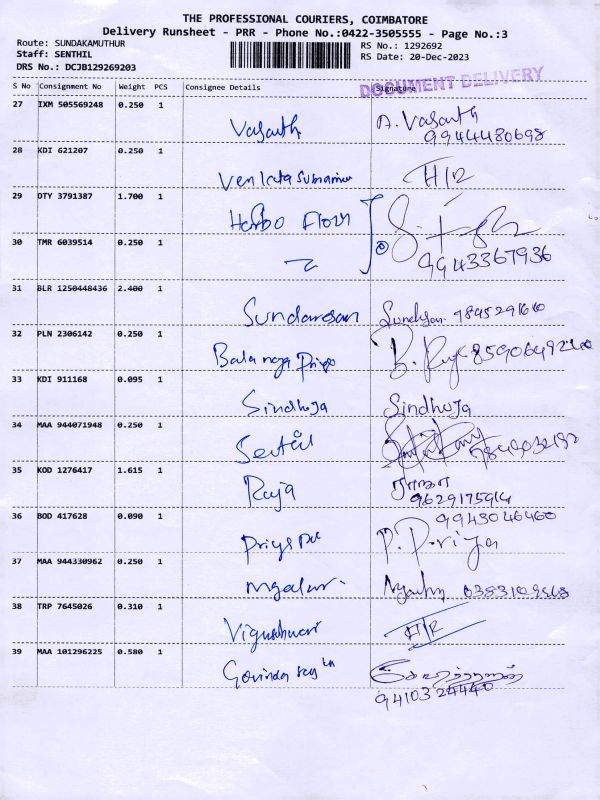 THE PROFESSIONAL COURIERS, COIMBATORE
Delivery Runsheet - PRR - Phone No.:0422-3505555 - Page No.:3
Route: SUNDAKAMUTHUR RS No.: 1292692
Staff: SENTHIL RS Date: 20-Dec-2023
DRS No.: DCJB129269203
DOCUMENT DELIVERY
S No Consignment No Weight PCS Consignee Details Signature
27 IXM 505569248 0.250 1
Vasanth A. Vasanth
9944480698
28 KDI 621207 0.250 1
H/R
29 DTY 3791387 1.700 1
Herbo
30 TMR 6039514 0.250 1
9943367936
31 BLR 1250448436 2.400 1
Sundaresan
32 PLN 2306142 0.250 1
33 KDI 911168 0.095 1
Sindhuja Sindhuja
34 MAA 944071948 0.250 1
35 KOD 1276417 1.615 1
Raja
9629175914
36 BOD 417628 0.090 1 9943046460
P. Priya
37 MAA 944330962 0.250 1
38 TRP 7645026 0.310 1
H/R
39 MAA 101296225 0.580 1
Govinda
9410324440